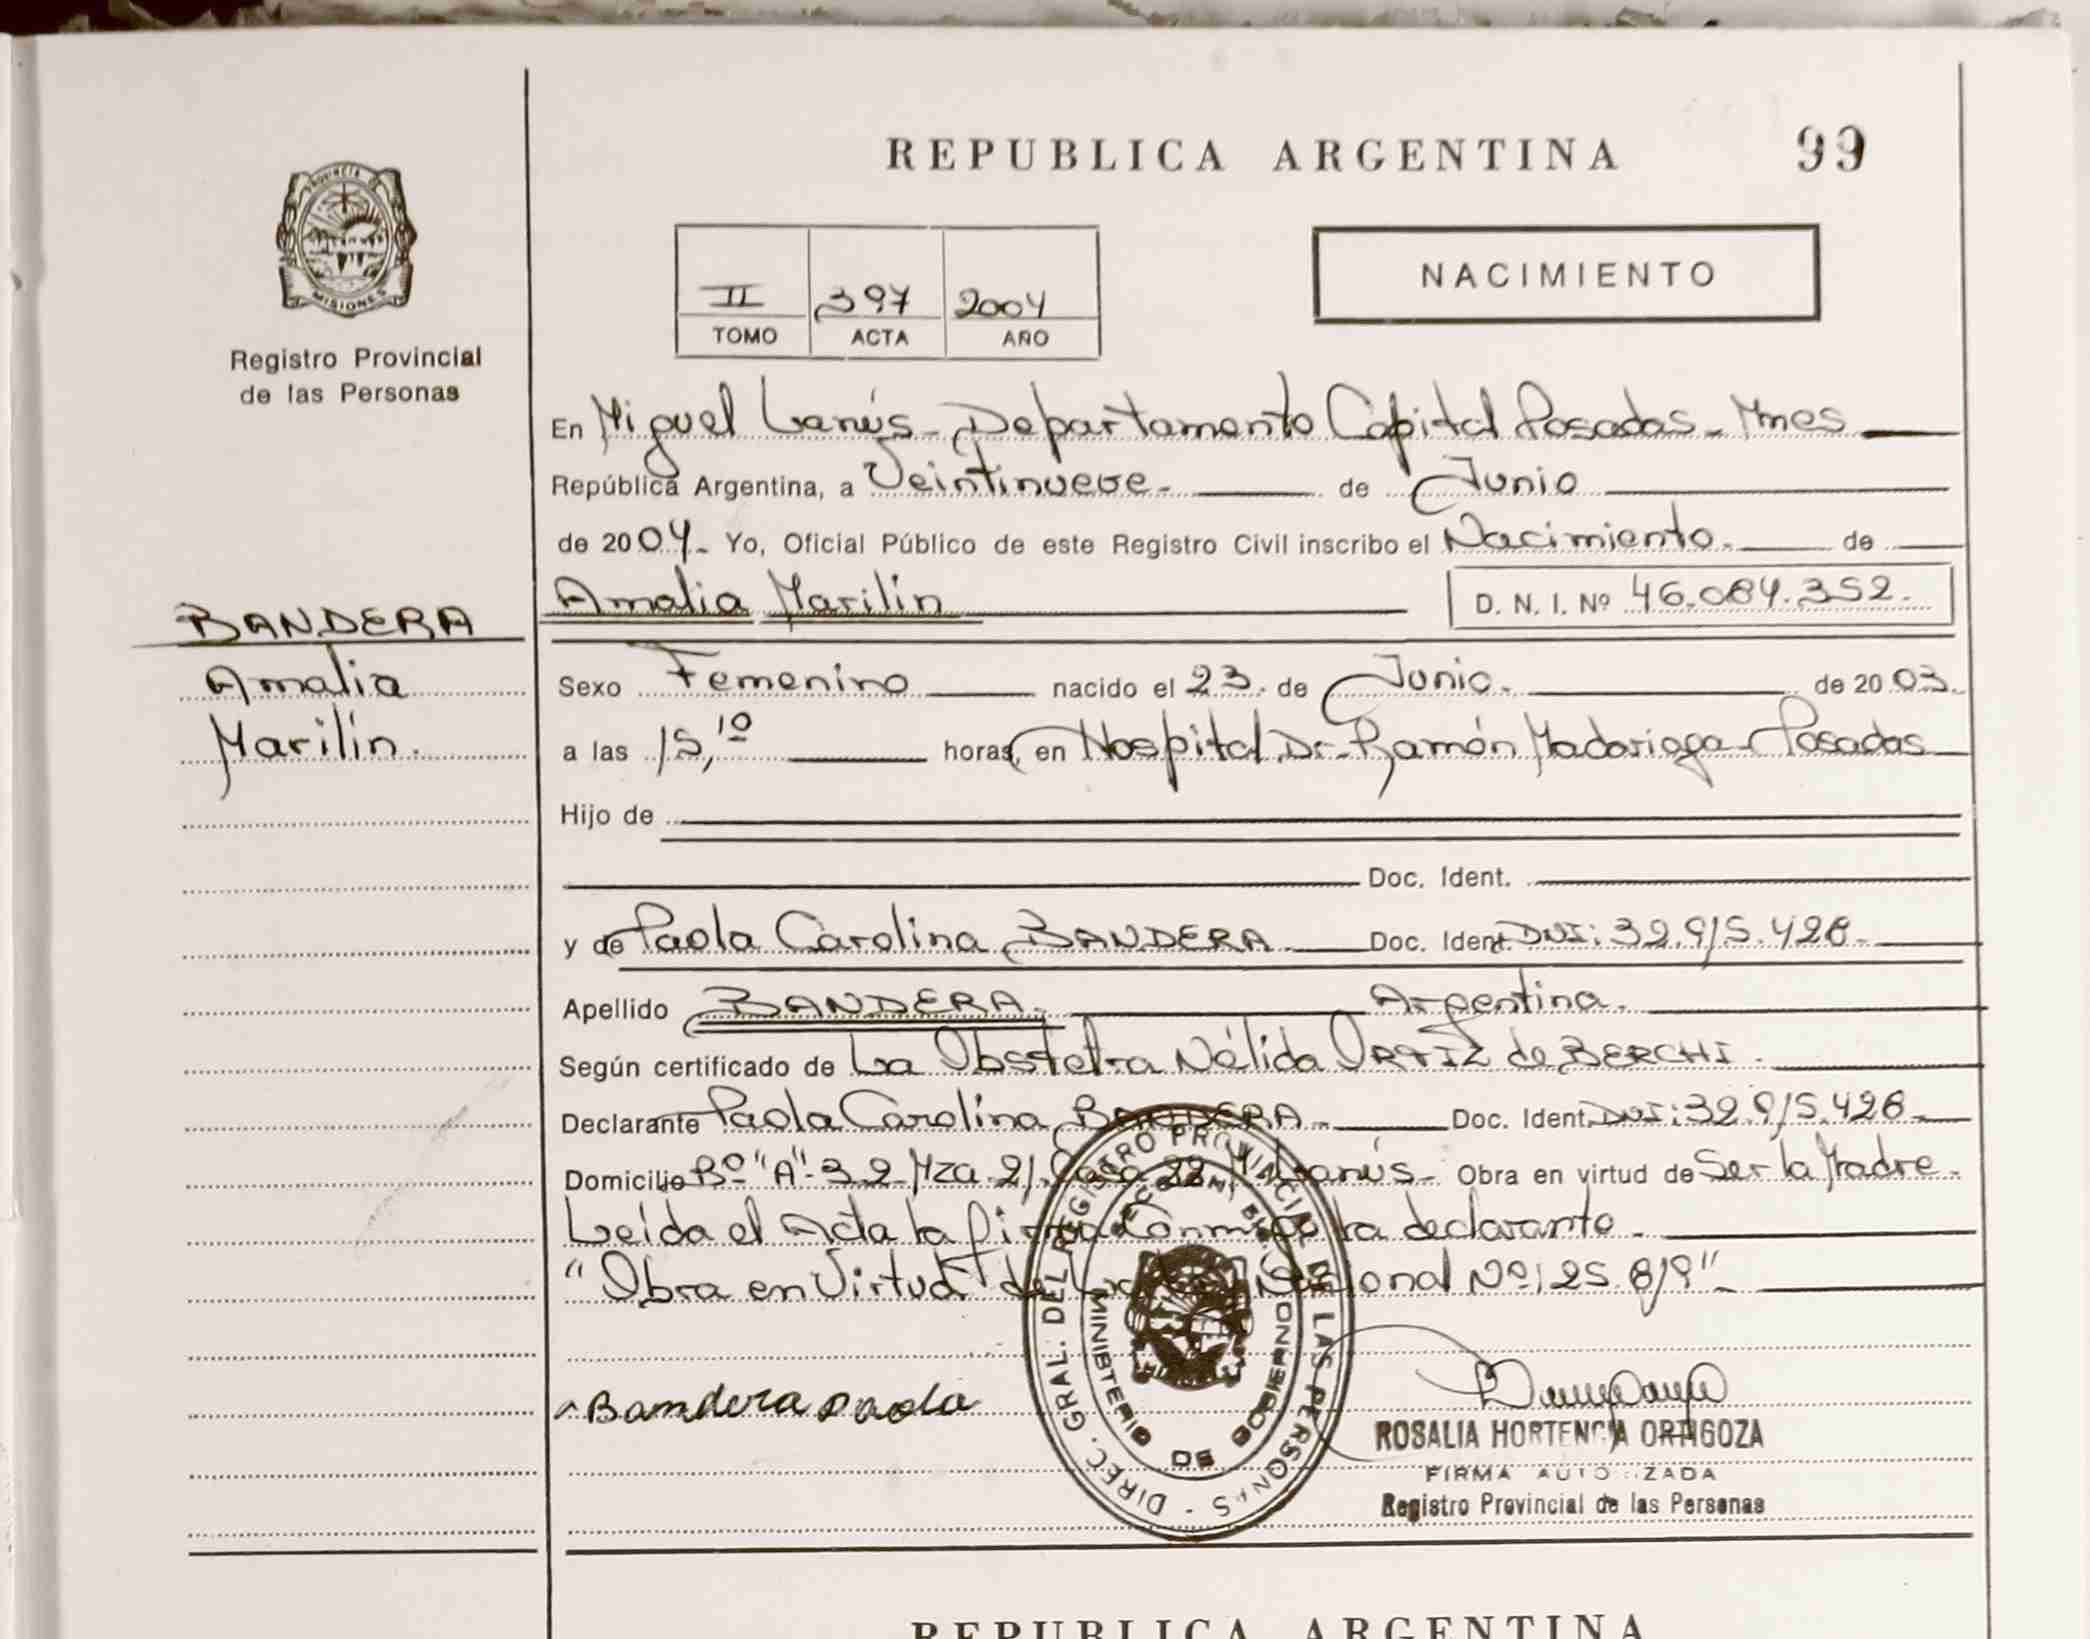 REPUBLICA ARGENTINA
99
PROVINCIA DE
MISIONES
Registro Provincial
de las Personas
II 397 2004
TOMO ACTA AÑO
NACIMIENTO
En Miguel Lanús - Departamento Capital Posadas - Mnes
República Argentina, a Veintinueve - de Junio
de 2004 - Yo, Oficial Público de este Registro Civil inscribo el Nacimiento - de
Amalia Marilin D. N. I. Nº 46.084.352.
BANDERA
Amalia
Marilin.
Sexo Femenino nacido el 23. de Junio. de 2003.
a las 15,10 horas, en Hospital Dr. Ramón Madariaga - Posadas
Hijo de
Doc. Ident.
y de Paola Carolina BANDERA Doc. Ident. DNI: 32.915.428 -
Apellido BANDERA. Argentina.
Según certificado de La Obstetra Nélida ORTIZ de BERCHI.
Declarante Paola Carolina BANDERA - Doc. Ident. DNI: 32.915.428 -
Domicilio Bº "A" - 32 Mza 21. Casa 22 M. Lanús - Obra en virtud de Ser la Madre -
Leída el Acta la firma Conmigo la declarante -
"Obra en Virtud de la Ley Nacional Nº: 25.819"
Bandera paola
DIREC. GRAL. DEL REGISTRO PROVINCIAL DE LAS PERSONAS -
MINISTERIO DE GOBIERNO
ROSALIA HORTENCIA ORTIGOZA
FIRMA AUTORIZADA
Registro Provincial de las Personas
REPUBLICA ARGENTINA